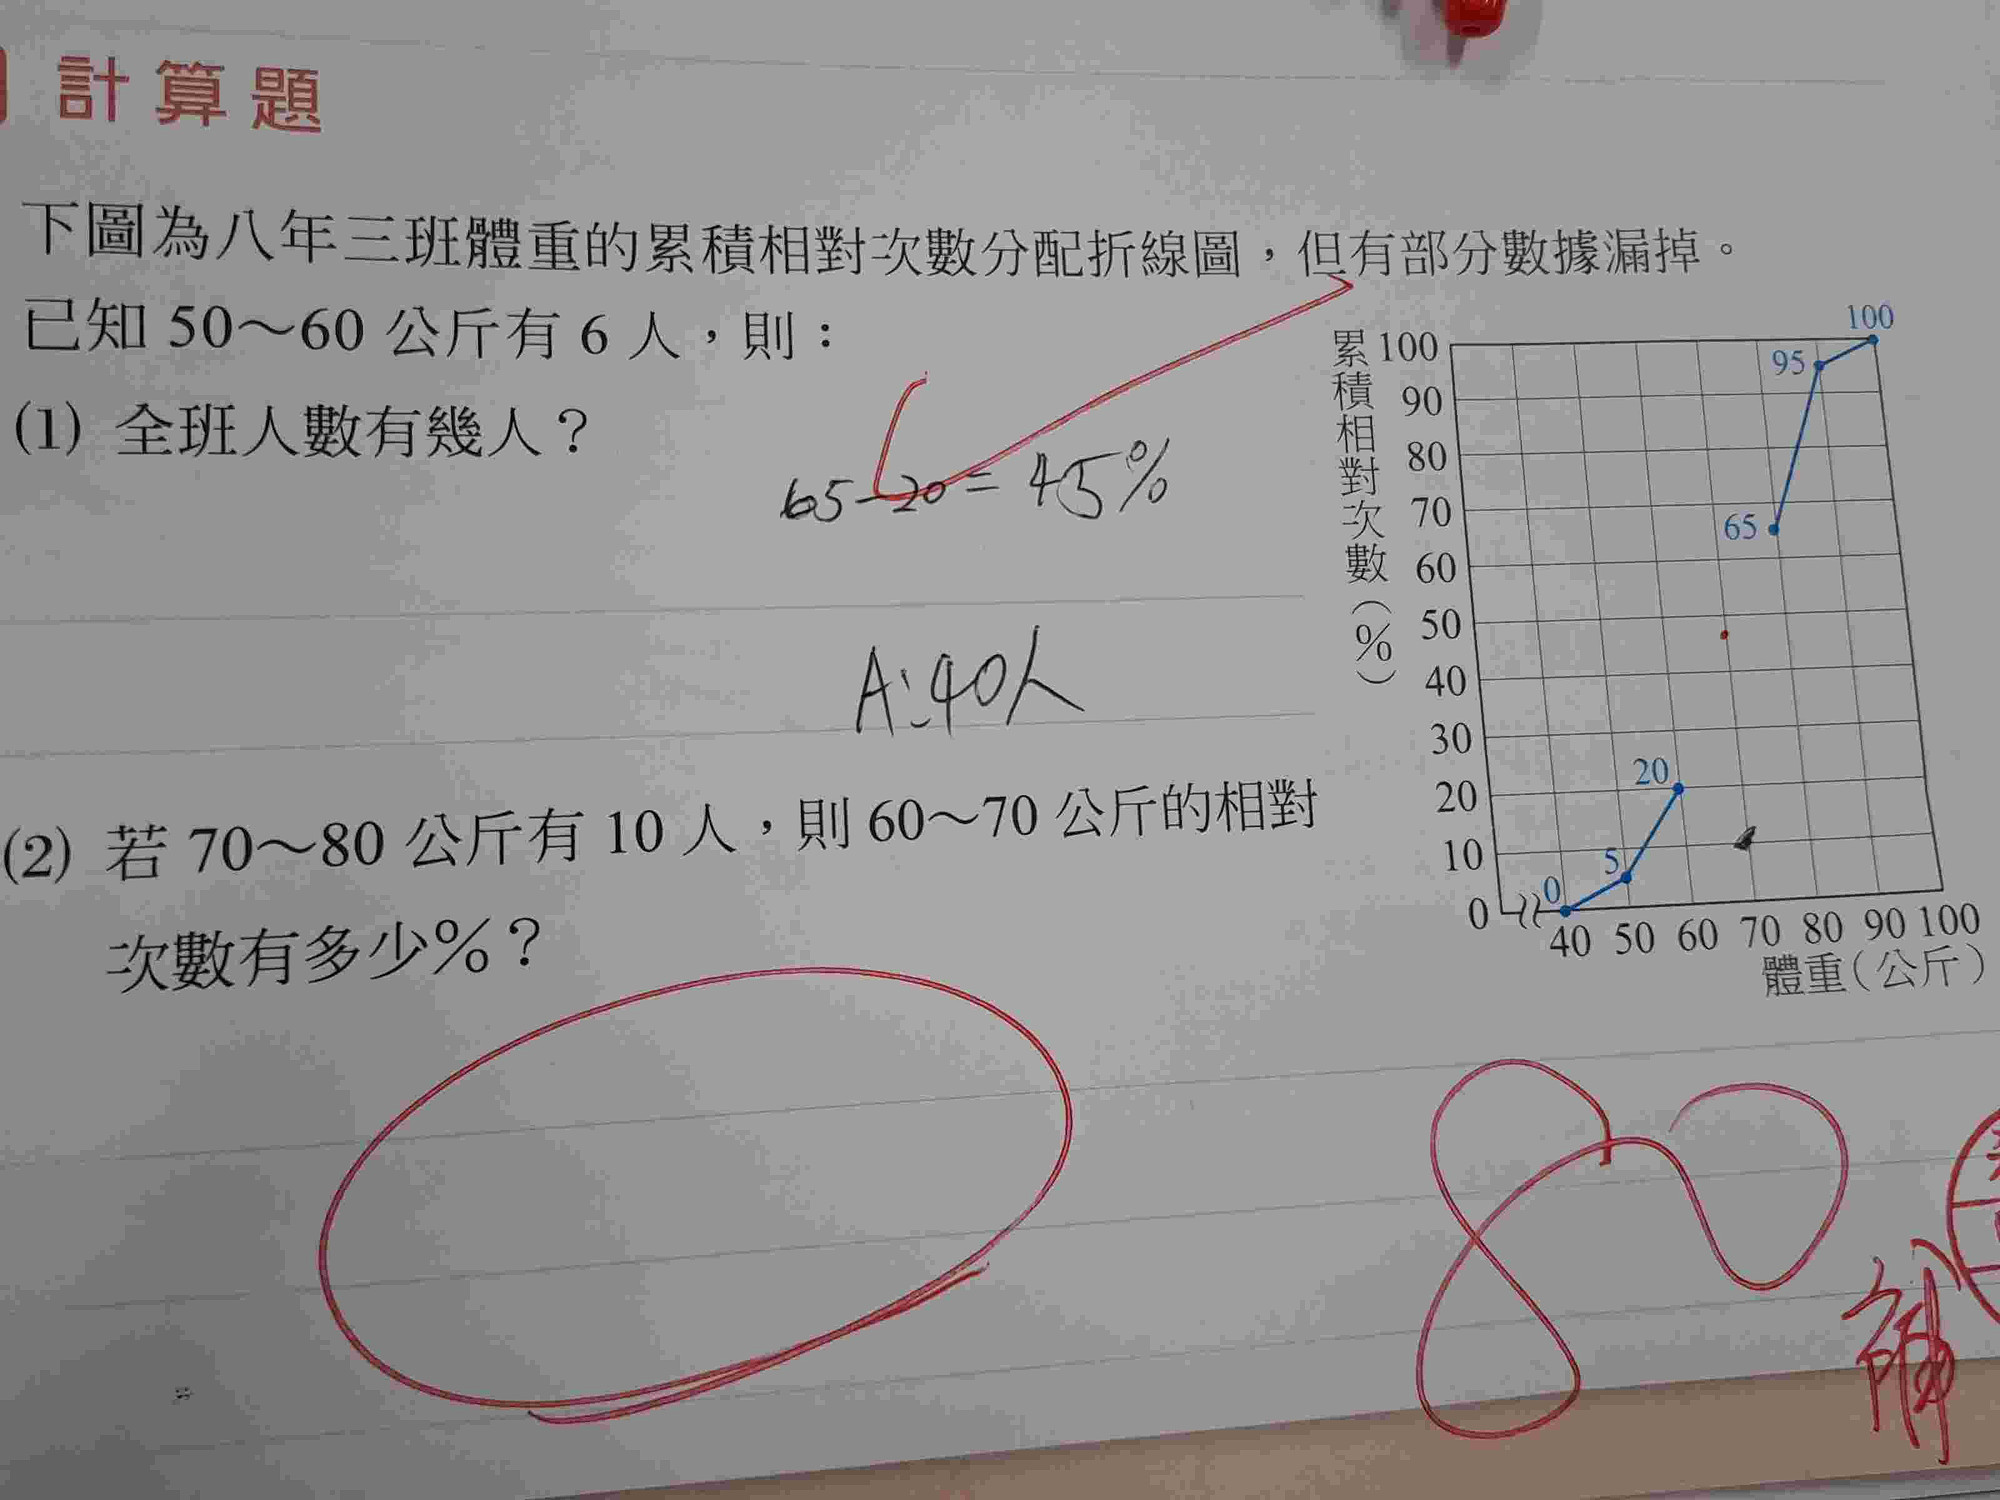 計算題
下圖為八年三班體重的累積相對次數分配折線圖，但有部分數據漏掉。
已知 50～60 公斤有 6 人，則：
(1) 全班人數有幾人？
65-20=45%
A:40人
(2) 若 70～80 公斤有 10 人，則 60～70 公斤的相對
次數有多少%？
累積相對次數(%)
100
90
80
70
60
50
40
30
20
10
0
0
5
20
65
95
100
40 50 60 70 80 90 100
體重(公斤)
80
補